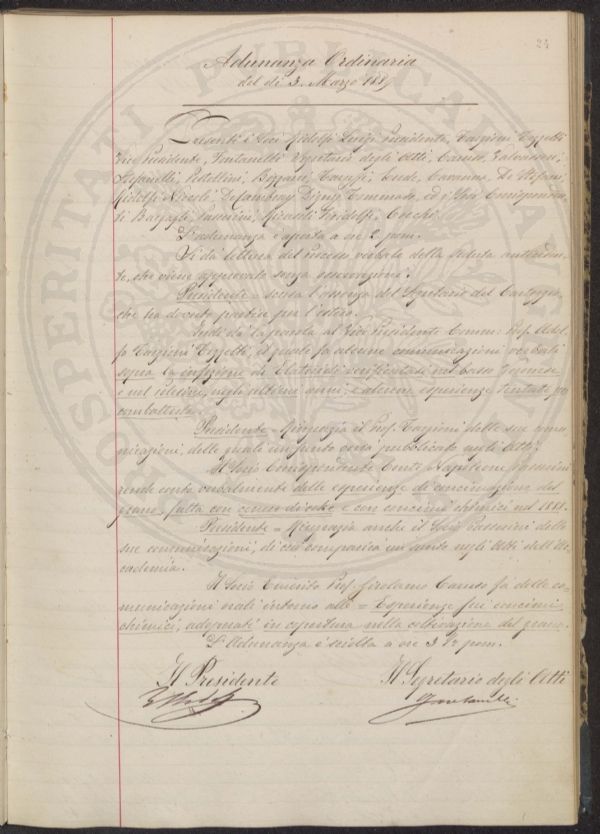 24
Adunanza Ordinaria
del dì 3. Marzo 1889
Presenti i Soci Ridolfi Luigi Presidente, Targioni Tozzetti
Vice Presidente, Fontanelli Segretario degli Atti, Caruso,
Stefanelli, Pestellini, De Stefani,
Ridolfi Niccolò, Dufour Berte, ed i Soci Corrispondenti
Passerini, Ridolfi
L'adunanza è aperta a ore 2 pom.
Si dà lettura del processo verbale della seduta anteceden-
te, che viene approvato senza osservazioni.
Presidente = scusa l'assenza del Segretario del Carteggio,
che ha dovuto partire per l'estero.
Quindi dà la parola al Vice Presidente Comm: Prof. Adol-
fo Targioni Tozzetti, il quale fa alcune comunicazioni verbali
sopra la infezione di Elateridi verificatasi nel basso Veronese
e nel Polesine, negli ultimi anni, e alcune esperienze tentate per
combatterla.
Presidente = Ringrazia il Prof. Targioni delle sue comu-
nicazioni, delle quali un sunto verrà pubblicato negli Atti.
Il Socio Corrispondente Conte Napoleone Passerini
rende conto verbalmente delle esperienze di concimazione del
grano, fatta con e con concimi chimici nel 1888.
Presidente = Ringrazia anche il Socio Passerini delle
sue comunicazioni, di cui comparirà un sunto negli Atti dell'Ac-
cademia.
Il Socio Emerito Prof. Girolamo Caruso fa delle co-
municazioni orali intorno alle = Esperienze sui concimi
chimici, adoprati in copertura nella coltivazione del grano.
L'Adunanza è sciolta a ore 3 ½ pom.
Il Presidente
Il Segretario degli Atti
Fontanelli
PROSPERITATI PUBLICAE